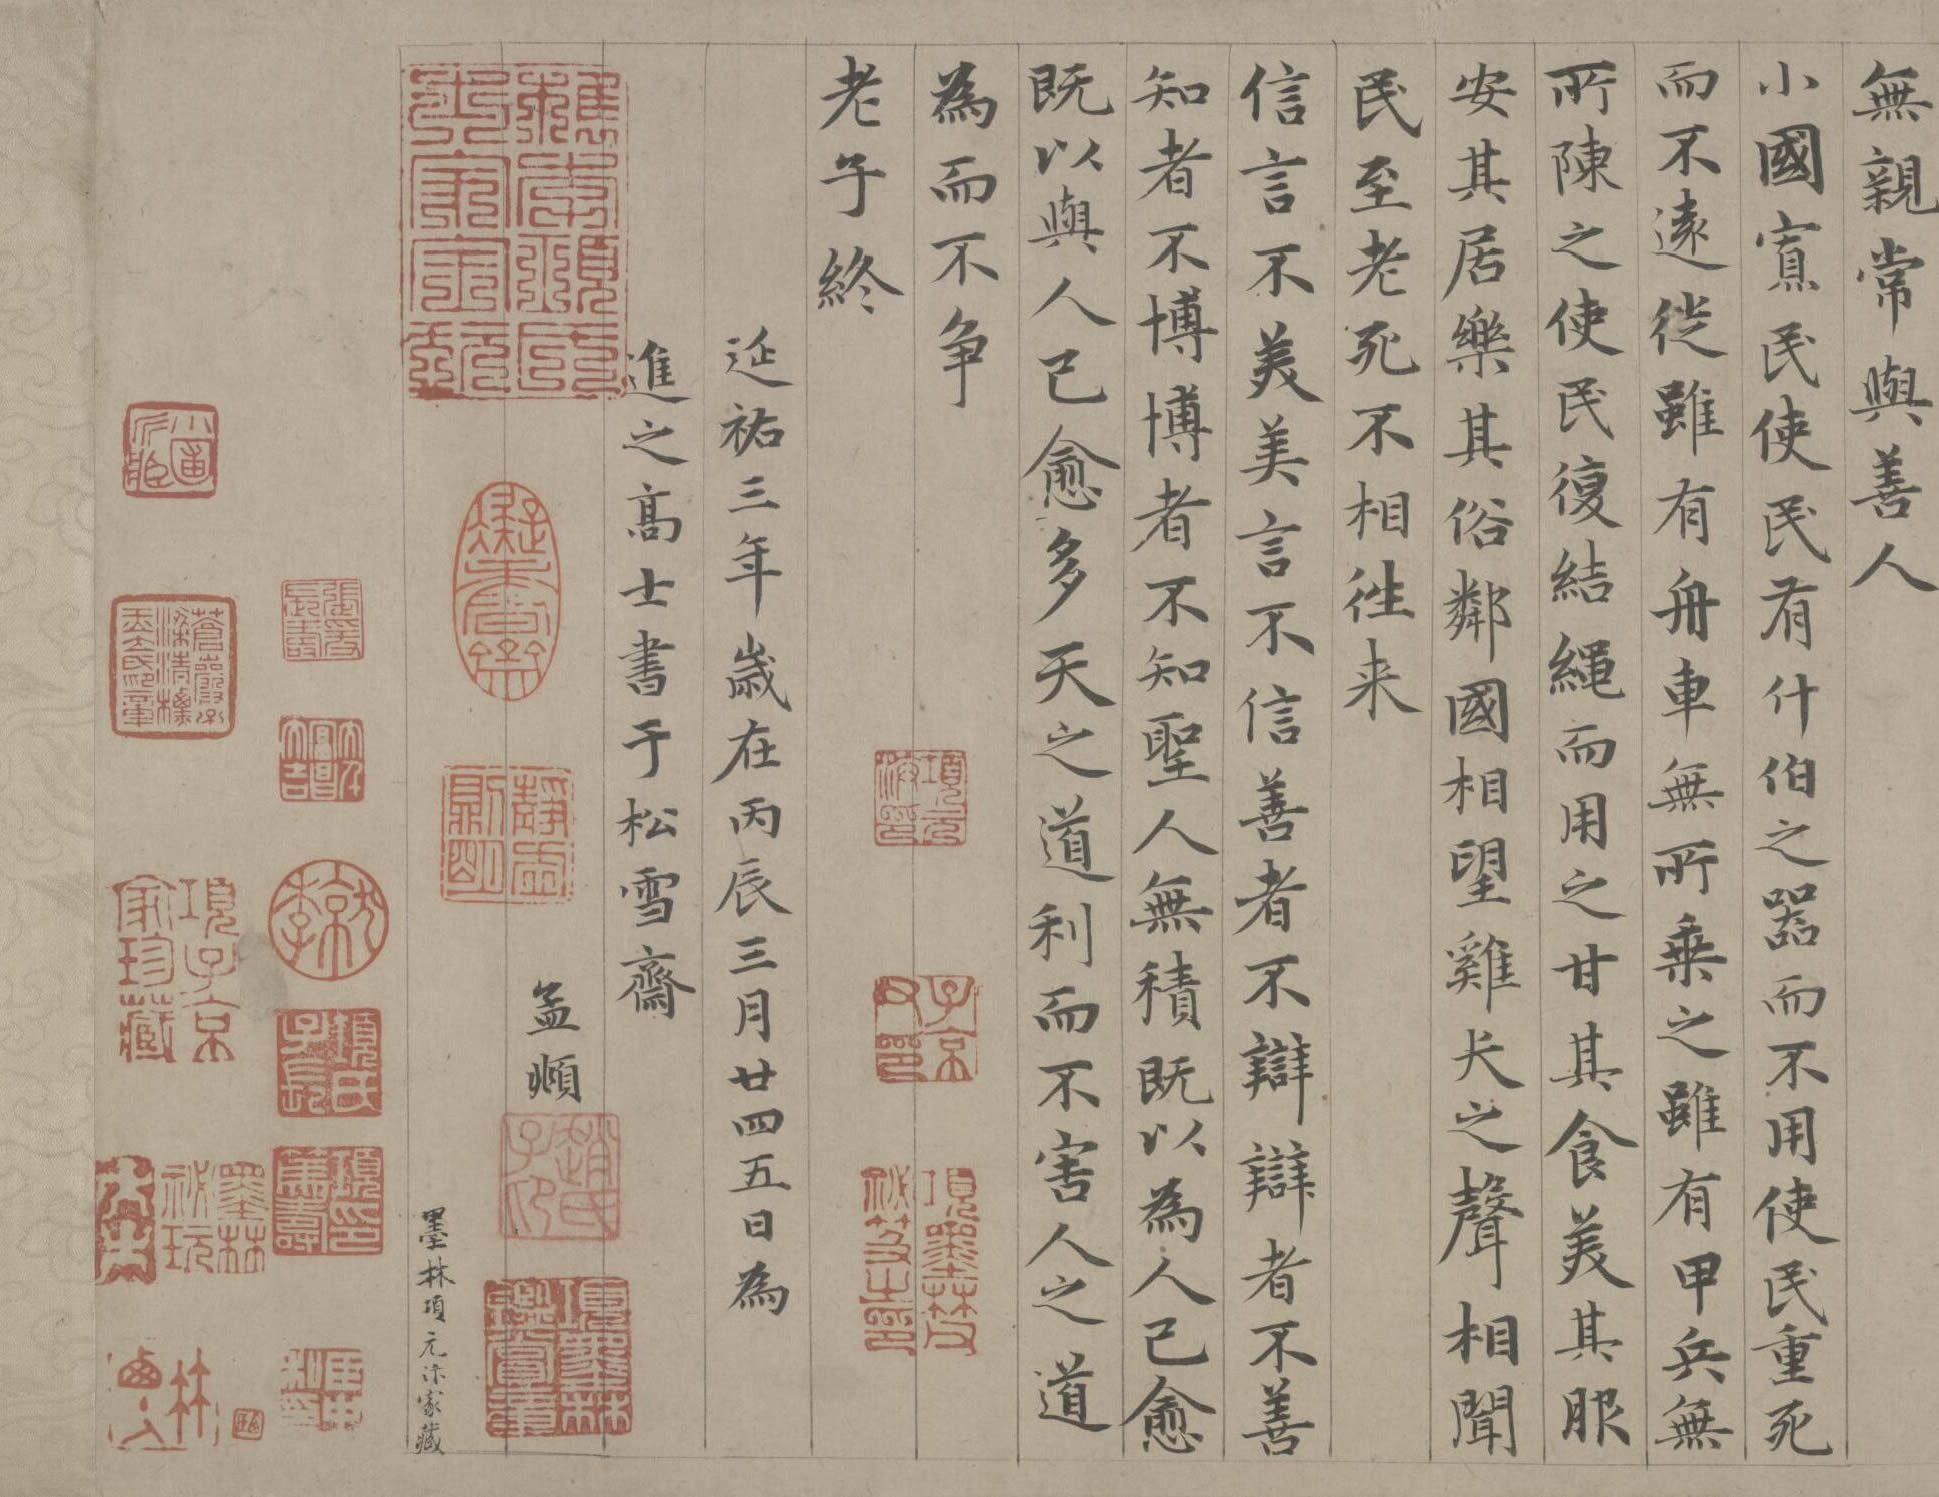 無親常與善人
小國寡民使民有什伯之器而不用使民重死
而不遠徙雖有舟車無所乘之雖有甲兵無
所陳之使民復結繩而用之甘其食美其服
安其居樂其俗鄰國相望雞犬之聲相聞
民至老死不相往来
信言不美美言不信善者不辯辯者不善
知者不博博者不知聖人無積既以為人己愈
既以與人己愈多天之道利而不害人之道
為而不争
項元汴印
子京父印
項墨林父秘笈之印
老子終
延祐三年歲在丙辰三月廿四五日為
進之高士書于松雪齋
孟頫
趙氏子昂
項墨林鑑賞章
墨林項元汴家藏
項子京家珍藏
墨林秘玩